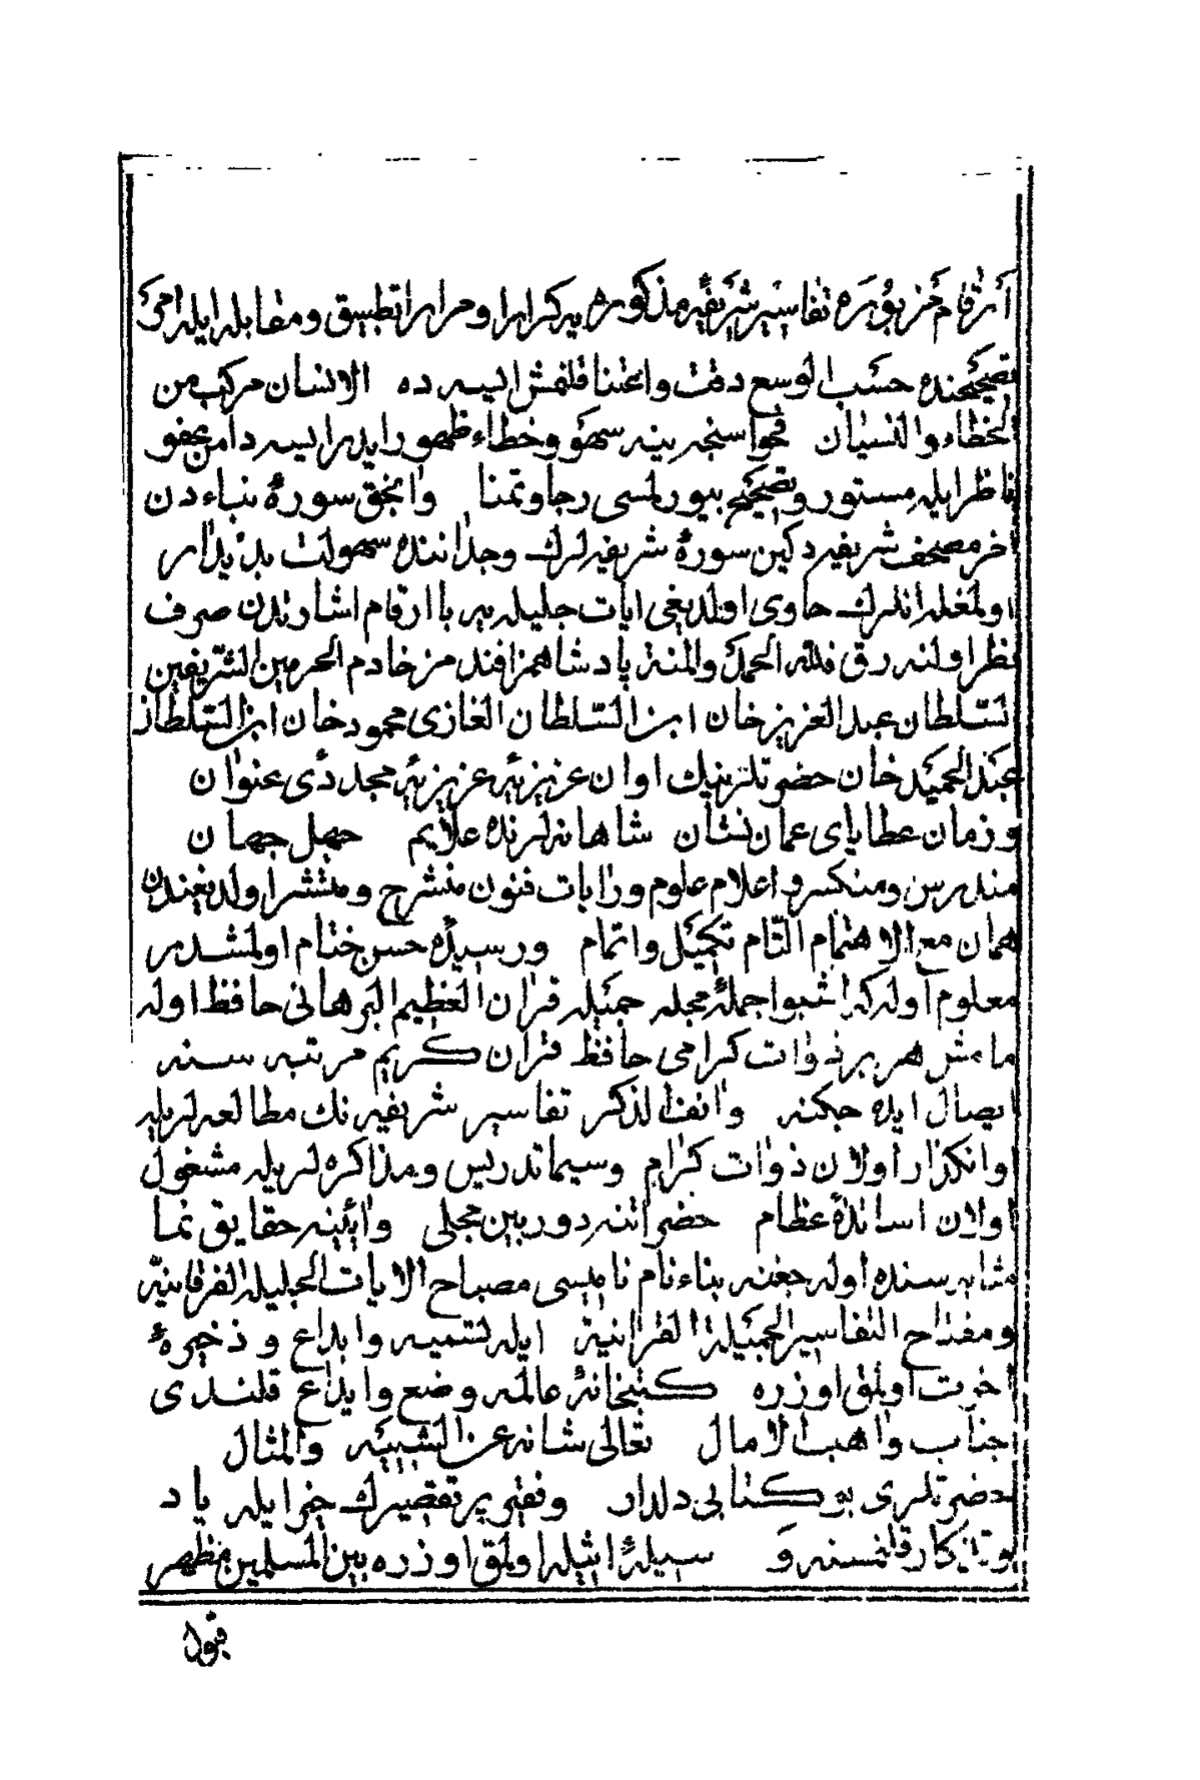 ارقام مزبوره تفاسير شريفۀ مذكوره يه كرارا ومرارا تطبيق ومقابله ايله امر
تصحيحنده حسب الوسع دقت واعتنا قلنمش ايسه ده الانسان مركب من
الخطاء والنسيان فحواسنجه ينه سهو وخطاء ظهور ايدر ايسه دامن عفو
ناظر ايله مستور وتصحيح بيورلمسى رجا وتمنا وانجق سورۀ نباء دن
اخر مصحف شريفه دكين سورۀ شريفه لرك وجداننده سهولت بديدار
اولمغله انلرك حاوى اولديغى ايات جليله يه با ارقام اشارتدن صرف
نظر اولنه رق فلله الحمد والمنة پادشاهمز افندمز خادم الحرمين الشريفين
السلطان عبد العزيز خان ابن السلطان الغازى محمود خان ابن السلطان
عبد الحميد خان حضرتلرينك اوان عزيزيۀ عزيزيۀ مجددى عنوان
وزمان عطاياى عمان نشان شاهانه لرنده علايم جهل جهان
مندرس ومنكسر و اعلام علوم ورايات فنون منشرح ومنتشر اولديغندن
همان مع الاهتمام التام تكميل واتمام ورسيدۀ حسن ختام اولمشدر
معلوم اوله كه اشبو اجملۀ مجله جميله قران العظيم البرهانى حافظ اوله
مامش هر بر ذوات كرامى حافظ قران كريم مرتبه سنه
ايصال ايده جكنه وانفا لذكر تفاسير شريفه نك مطالعه لريله
وانكزار اولان ذوات كرام وسيما تدريس ومذاكره لريله مشغول
اولان اساتذۀ عظام حضراتنه دوربين مجلى وايينه حقايق نما
مثابه سنده اوله جغنه بناء نام ناميسى مصباح الايات الجليله الفرقانيه
ومفتاح التفاسير الجميلة القرانية ايله تسميه وابداع و ذخيرۀ
اخرت اولمق اوزره كتبخانۀ عالمه وضع وايداع قلندى
جناب واهب الامال تعالى شانه عن الشبيه والمثال
حضرتلرى بو كتابى دلدار وفقير پر تقصيرك خير ايله ياد
وتذكار قلنمسنه و سيلۀ اثيله اولمق اوزره بين المسلمين مظهر
قبول